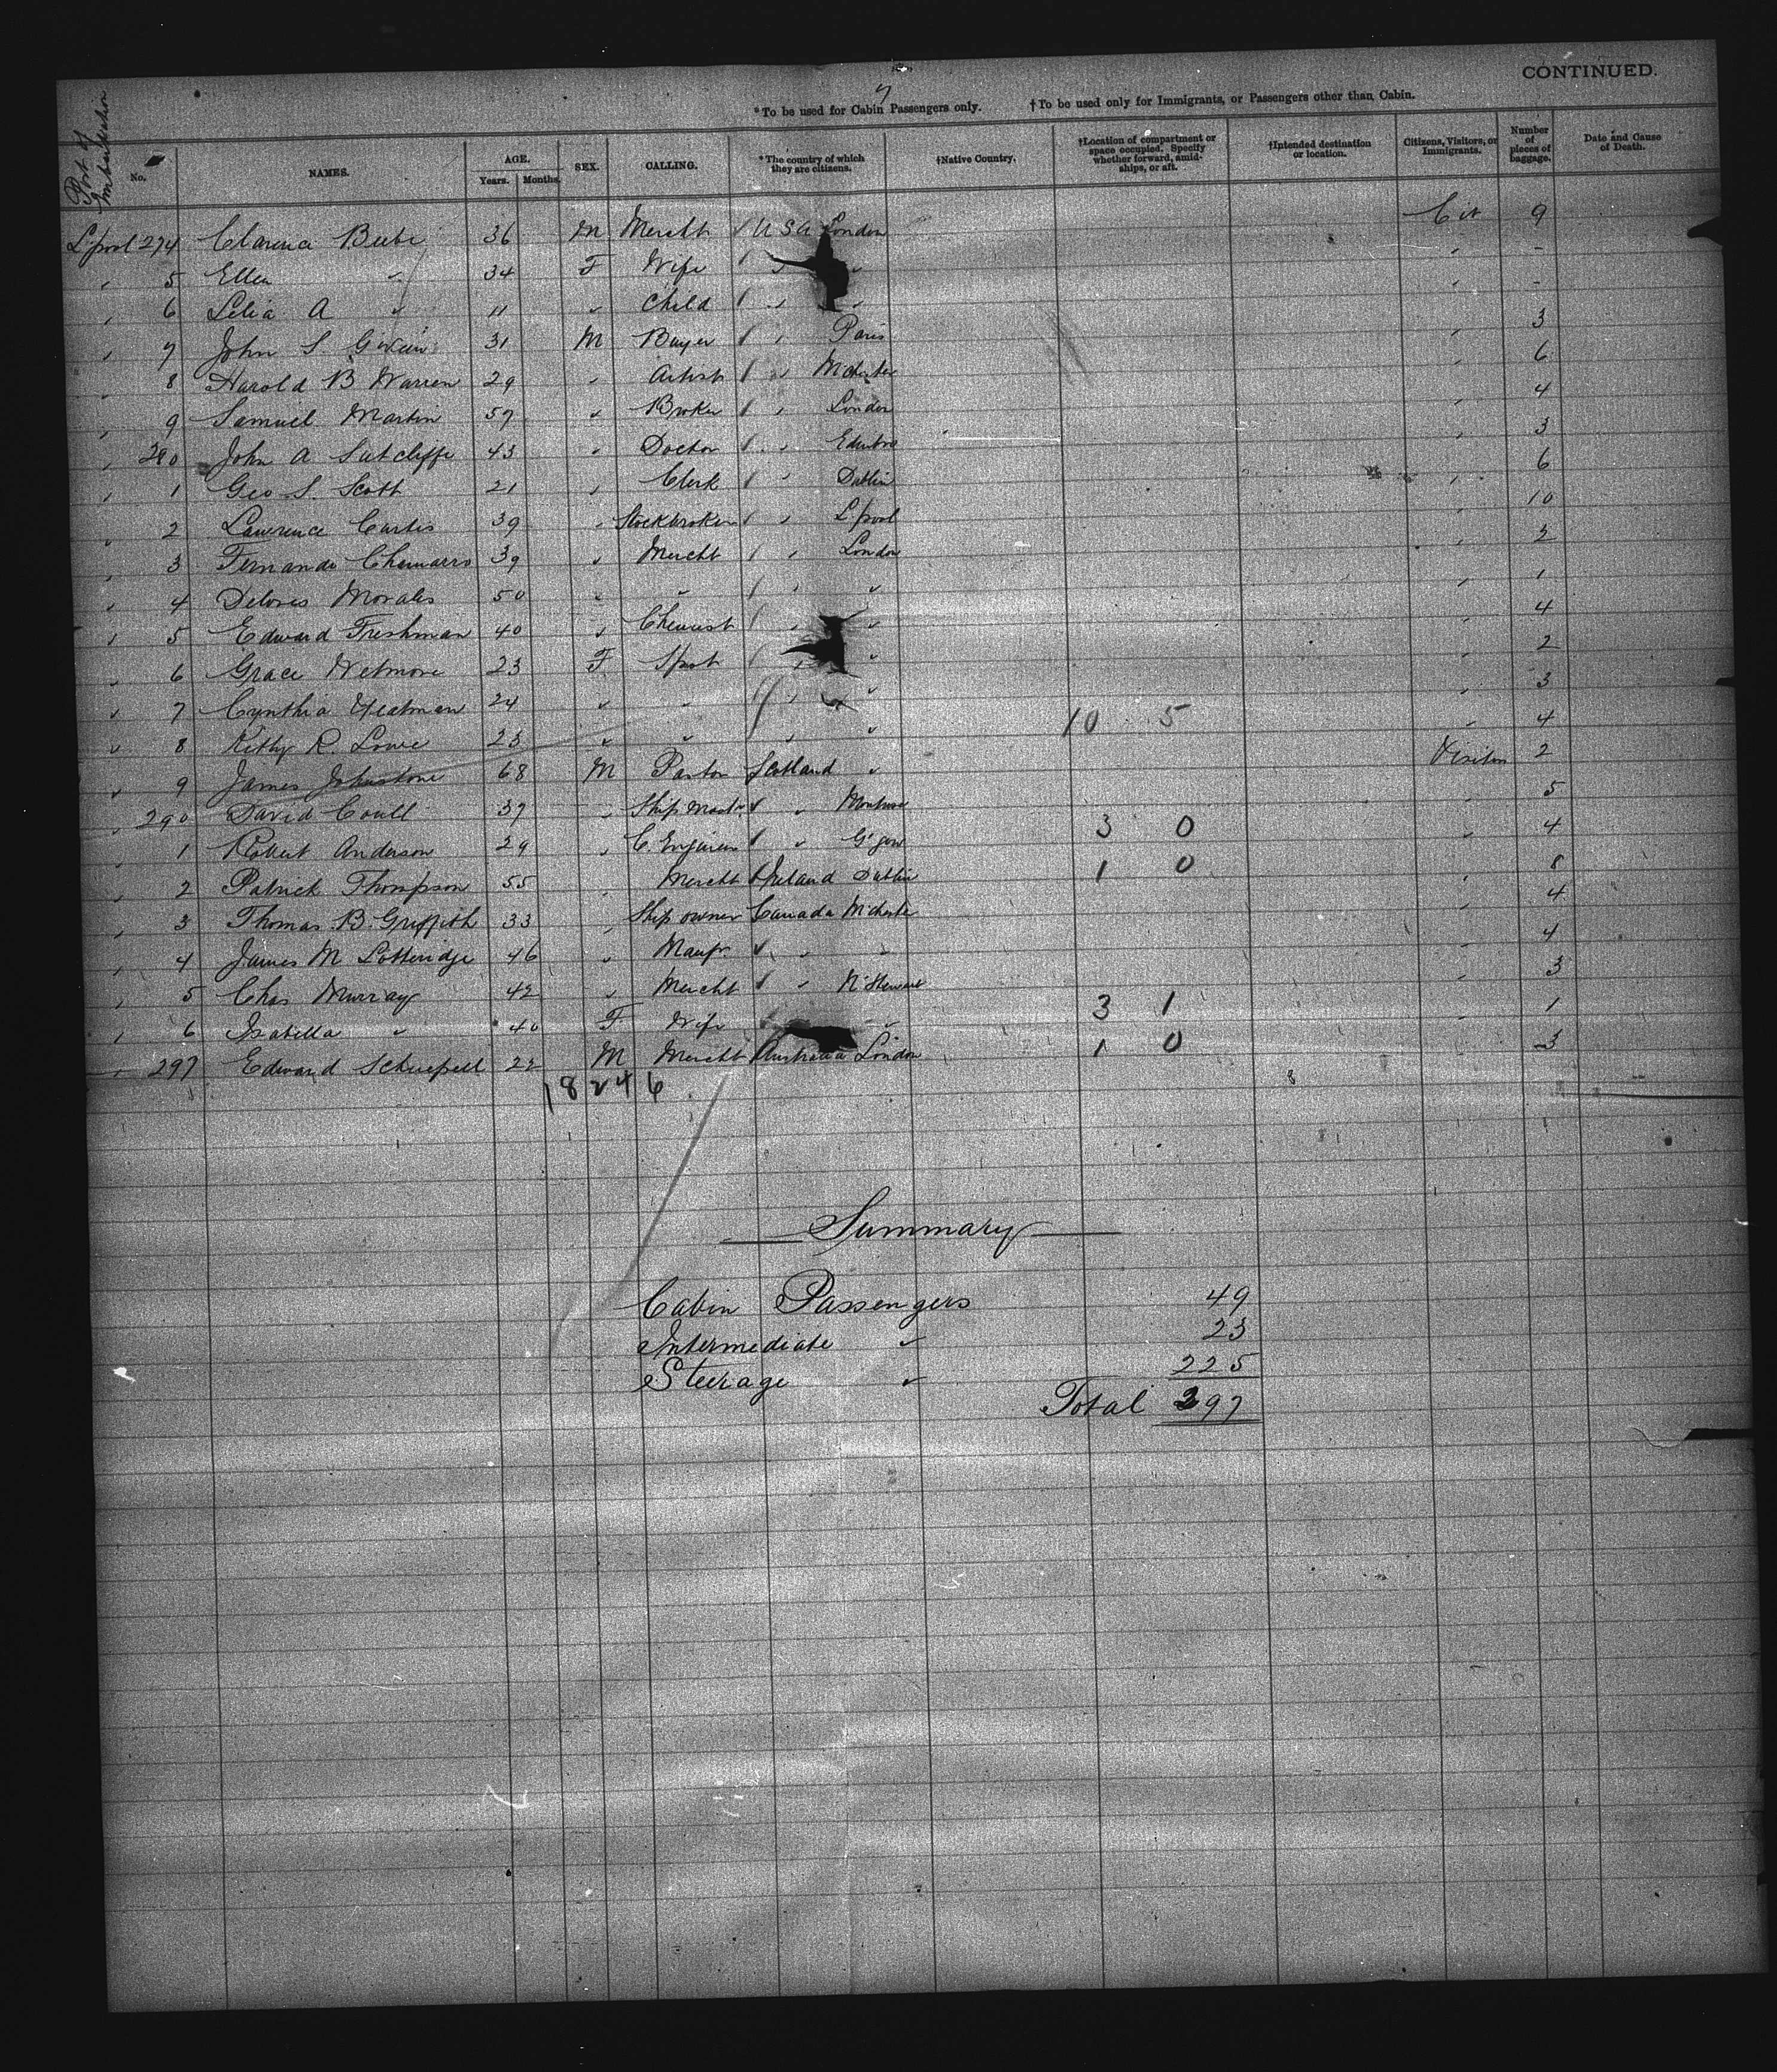 7
CONTINUED.
*To be used for Cabin Passengers only. †To be used only for Immigrants, or Passengers other than Cabin.
Port of Embarkation No. NAMES. AGE. Years. Months. SEX. CALLING. *The country of which they are citizens. †Native Country. †Location of compartment or space occupied. Specify whether forward, amidships, or aft. †Intended destination or location. Citizens, Visitors, or Immigrants. Number of pieces of baggage. Date and Cause of Death.
L'pool 274 Clarence Beebe 36 M Mercht USA London Cit 9
" 5 Ellen " 34 F Wife " " " -
" 6 Lelia A " 11 " Child " " " -
" 7 John S. 31 M Buyer " Paris " 3
" 8 Harold B Warren 29 " Artist " M'chester " 6
" 9 Samuel Martin 57 " Broker " London " 4
" 280 John A Sutcliffe 43 " Doctor " " 3
" 1 Geo S. Scott 21 " Clerk " Dublin " 6
" 2 Lawrence Curtis 39 " Stockbroker " L'pool " 10
" 3 Fernando Chamarro 39 " Mercht " London " 2
" 4 Delores Morales 50 " " " " " 1
" 5 Edward Freshman 40 " Chemist " " " 4
" 6 Grace Wetmore 23 F Spst " " " 2
" 7 Cynthia Yeatman 24 " " " " " 3
" 8 Kethy R. Lowe 23 " " " " 10 5 " 4
" 9 James Johnstone 68 M Pastor Scotland " Visitor 2
" 290 David Coull 37 " Ship Mastr. " Montrose " 5
" 1 Robert Anderson 29 " C. Engineer " G'gow 3 0 " 4
" 2 Patrick Thompson 55 " Mercht Ireland Dublin 1 0 " 8
" 3 Thomas B. Griffith 33 " Ship owner Canada M'chester " 4
" 4 James M Lotteridge 46 " Manfr. " " " 4
" 5 Chas Murray 42 " Mercht " " 3
" 6 Isabella " 40 F Wife " 3 1 " 1
" 297 Edward 22 M Mercht Australia London 1 0 3
18246
Summary
Cabin Passengers 49
Intermediate " 23
Steerage " 225
Total 297